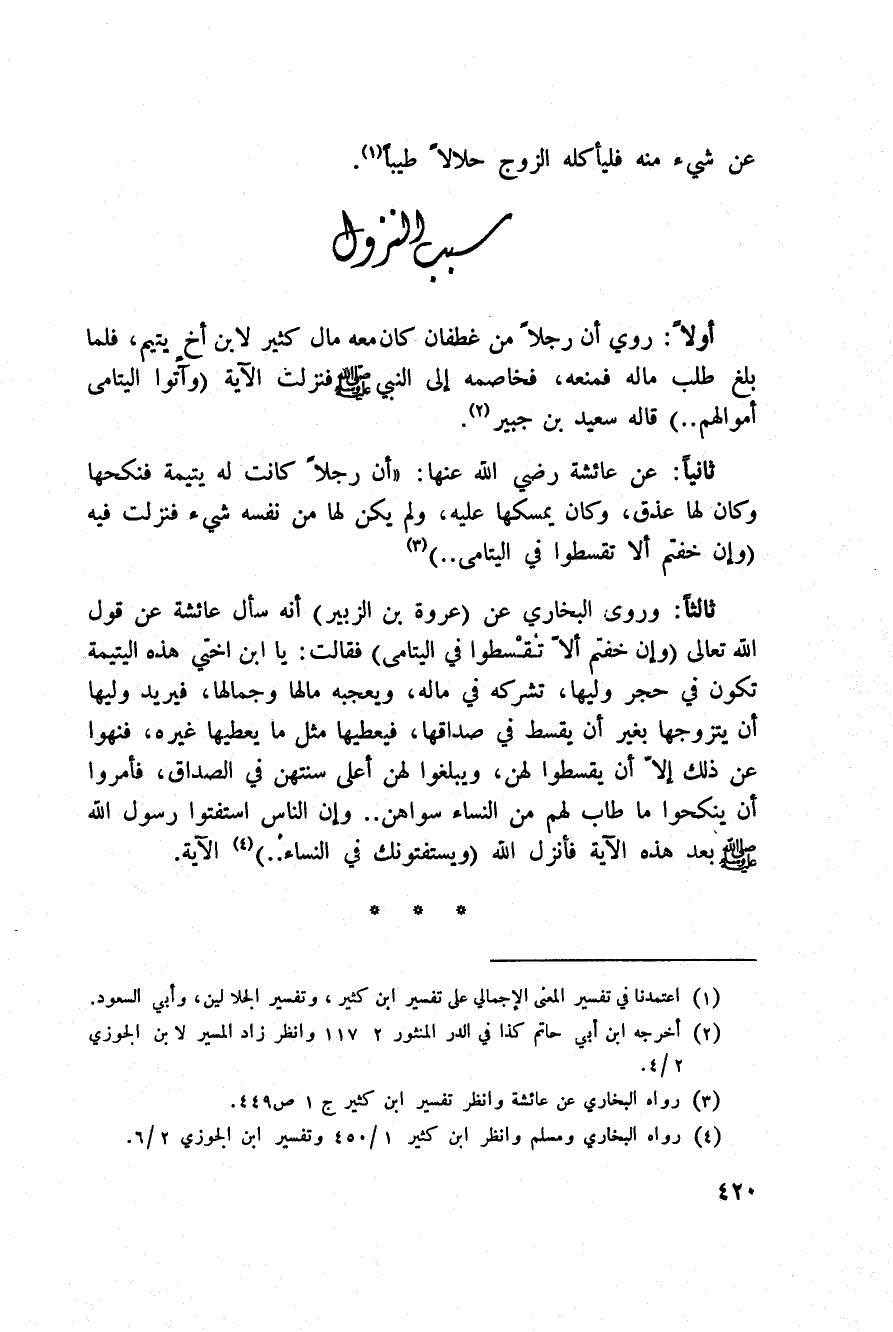 عن شيء منه فليأكله الزوج حلالاً طيباً(١).
سبب النزول
أولاً: روي أن رجلاً من غطفان كان معه مال كثير لابن أخ يتيم، فلما
بلغ طلب ماله فمنعه، فخاصمه إلى النبي ﷺ فنزلت الآية (وآتُوا اليتامى
أموالهم..) قاله سعيد بن جبير(٢).
ثانياً: عن عائشة رضي الله عنها: «أن رجلاً كانت له يتيمة فنكحها
وكان لها عذق، وكان يمسكها عليه، ولم يكن لها من نفسه شيء فنزلت فيه
(وإن خفتم ألا تقسطوا في اليتامى..)(٣)
ثالثاً: وروى البخاري عن (عروة بن الزبير) أنه سأل عائشة عن قول
الله تعالى (وإن خفتم ألاّ تُقْسطوا في اليتامى) فقالت: يا ابن اختي هذه اليتيمة
تكون في حجر وليها، تشركه في ماله، ويعجبه مالها وجمالها، فيريد وليها
أن يتزوجها بغير أن يقسط في صداقها، فيعطيها مثل ما يعطيها غيره، فنهوا
عن ذلك إلاّ أن يقسطوا لهن، ويبلغوا لهن أعلى سنتهن في الصداق، فأمروا
أن ينكحوا ما طاب لهم من النساء سواهن.. وإن الناس استفتوا رسول الله
ﷺ بعد هذه الآية فأنزل الله (ويستفتونك في النساء..)(٤) الآية.
* * *
(١) اعتمدنا في تفسير المعنى الإجمالي على تفسير ابن كثير، وتفسير الجلالين، وأبي السعود.
(٢) أخرجه ابن أبي حاتم كذا في الدر المنثور ٢ ١١٧ وانظر زاد المسير لابن الجوزي
٤/٢.
(٣) رواه البخاري عن عائشة وانظر تفسير ابن كثير ج ١ ص٤٤٩.
(٤) رواه البخاري ومسلم وانظر ابن كثير ٤٥٠/١ وتفسير ابن الجوزي ٦/٢.
٤٢٠